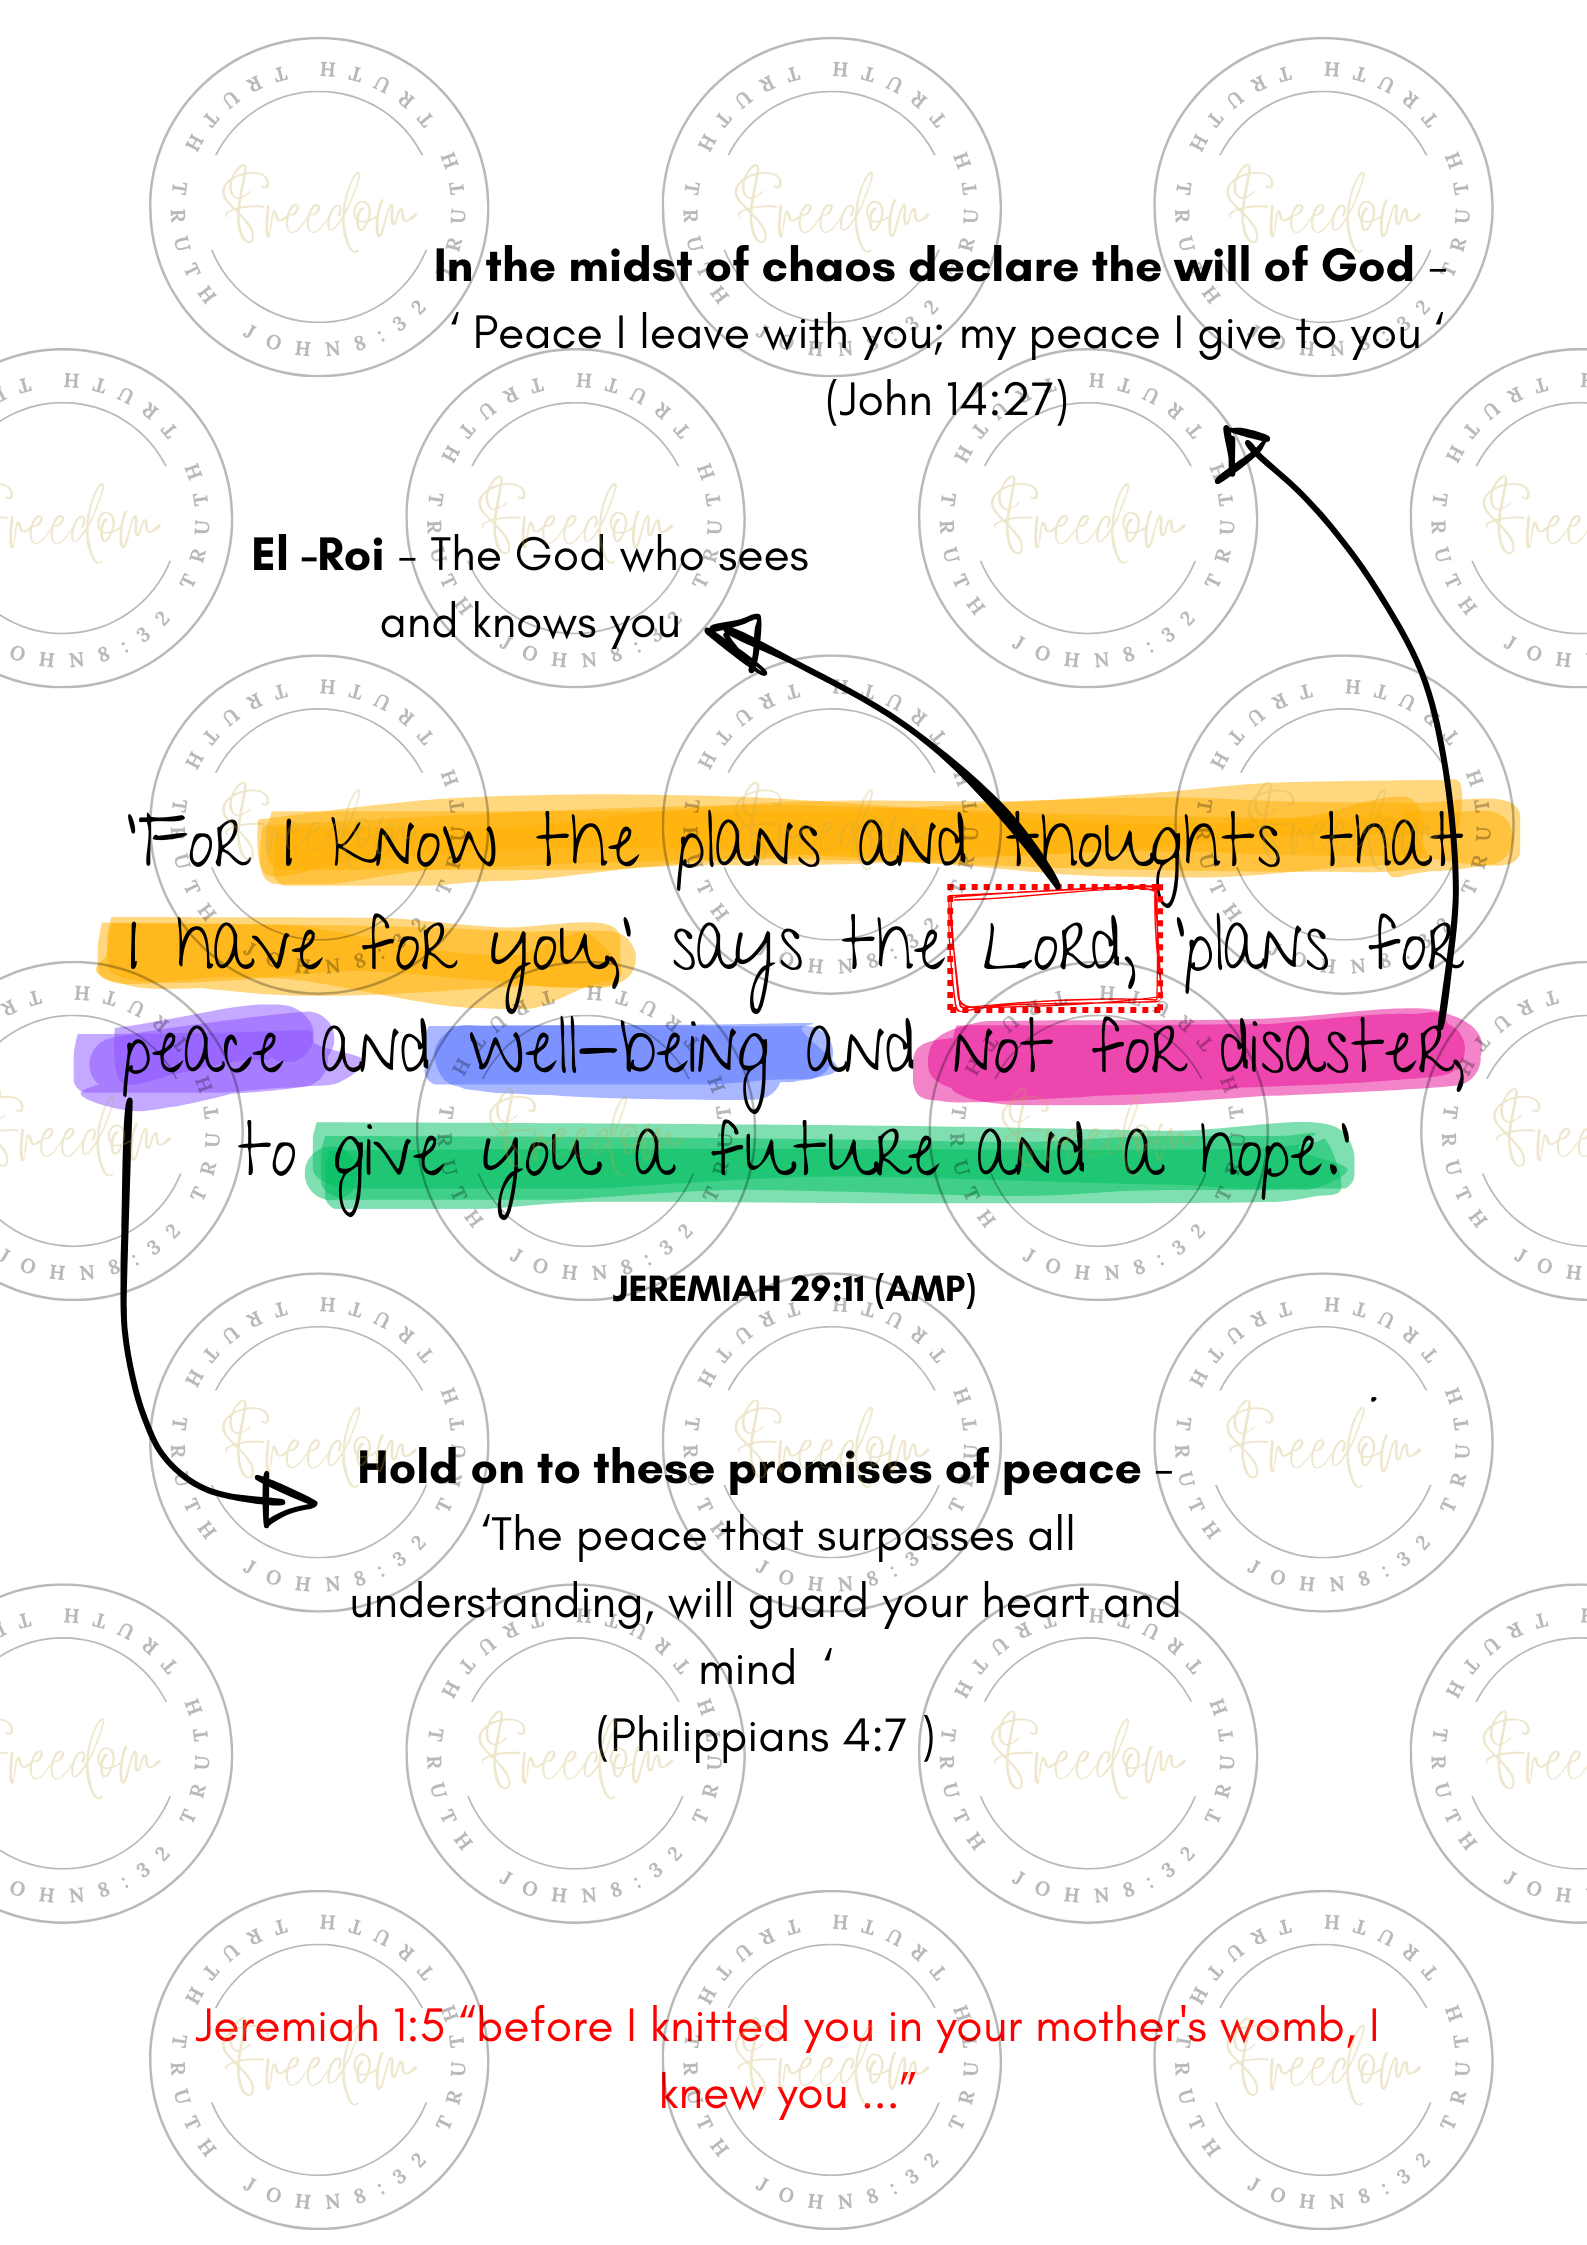 In the midst of chaos declare the will of God –
‘ Peace I leave with you; my peace I give to you ‘
(John 14:27)
El -Roi – The God who sees
and knows you
'For I know the plans and thoughts that
I have for you,' says the Lord, 'plans for
peace and well-being and not for disaster,
to give you a future and a hope.'
JEREMIAH 29:11 (AMP)
Hold on to these promises of peace –
‘The peace that surpasses all
understanding, will guard your heart and
mind ‘
(Philippians 4:7 )
Jeremiah 1:5 “before I knitted you in your mother's womb, I
knew you ...”
TRUTH TRUTH TRUTH TRUTH JOHN 8:32
Freedom